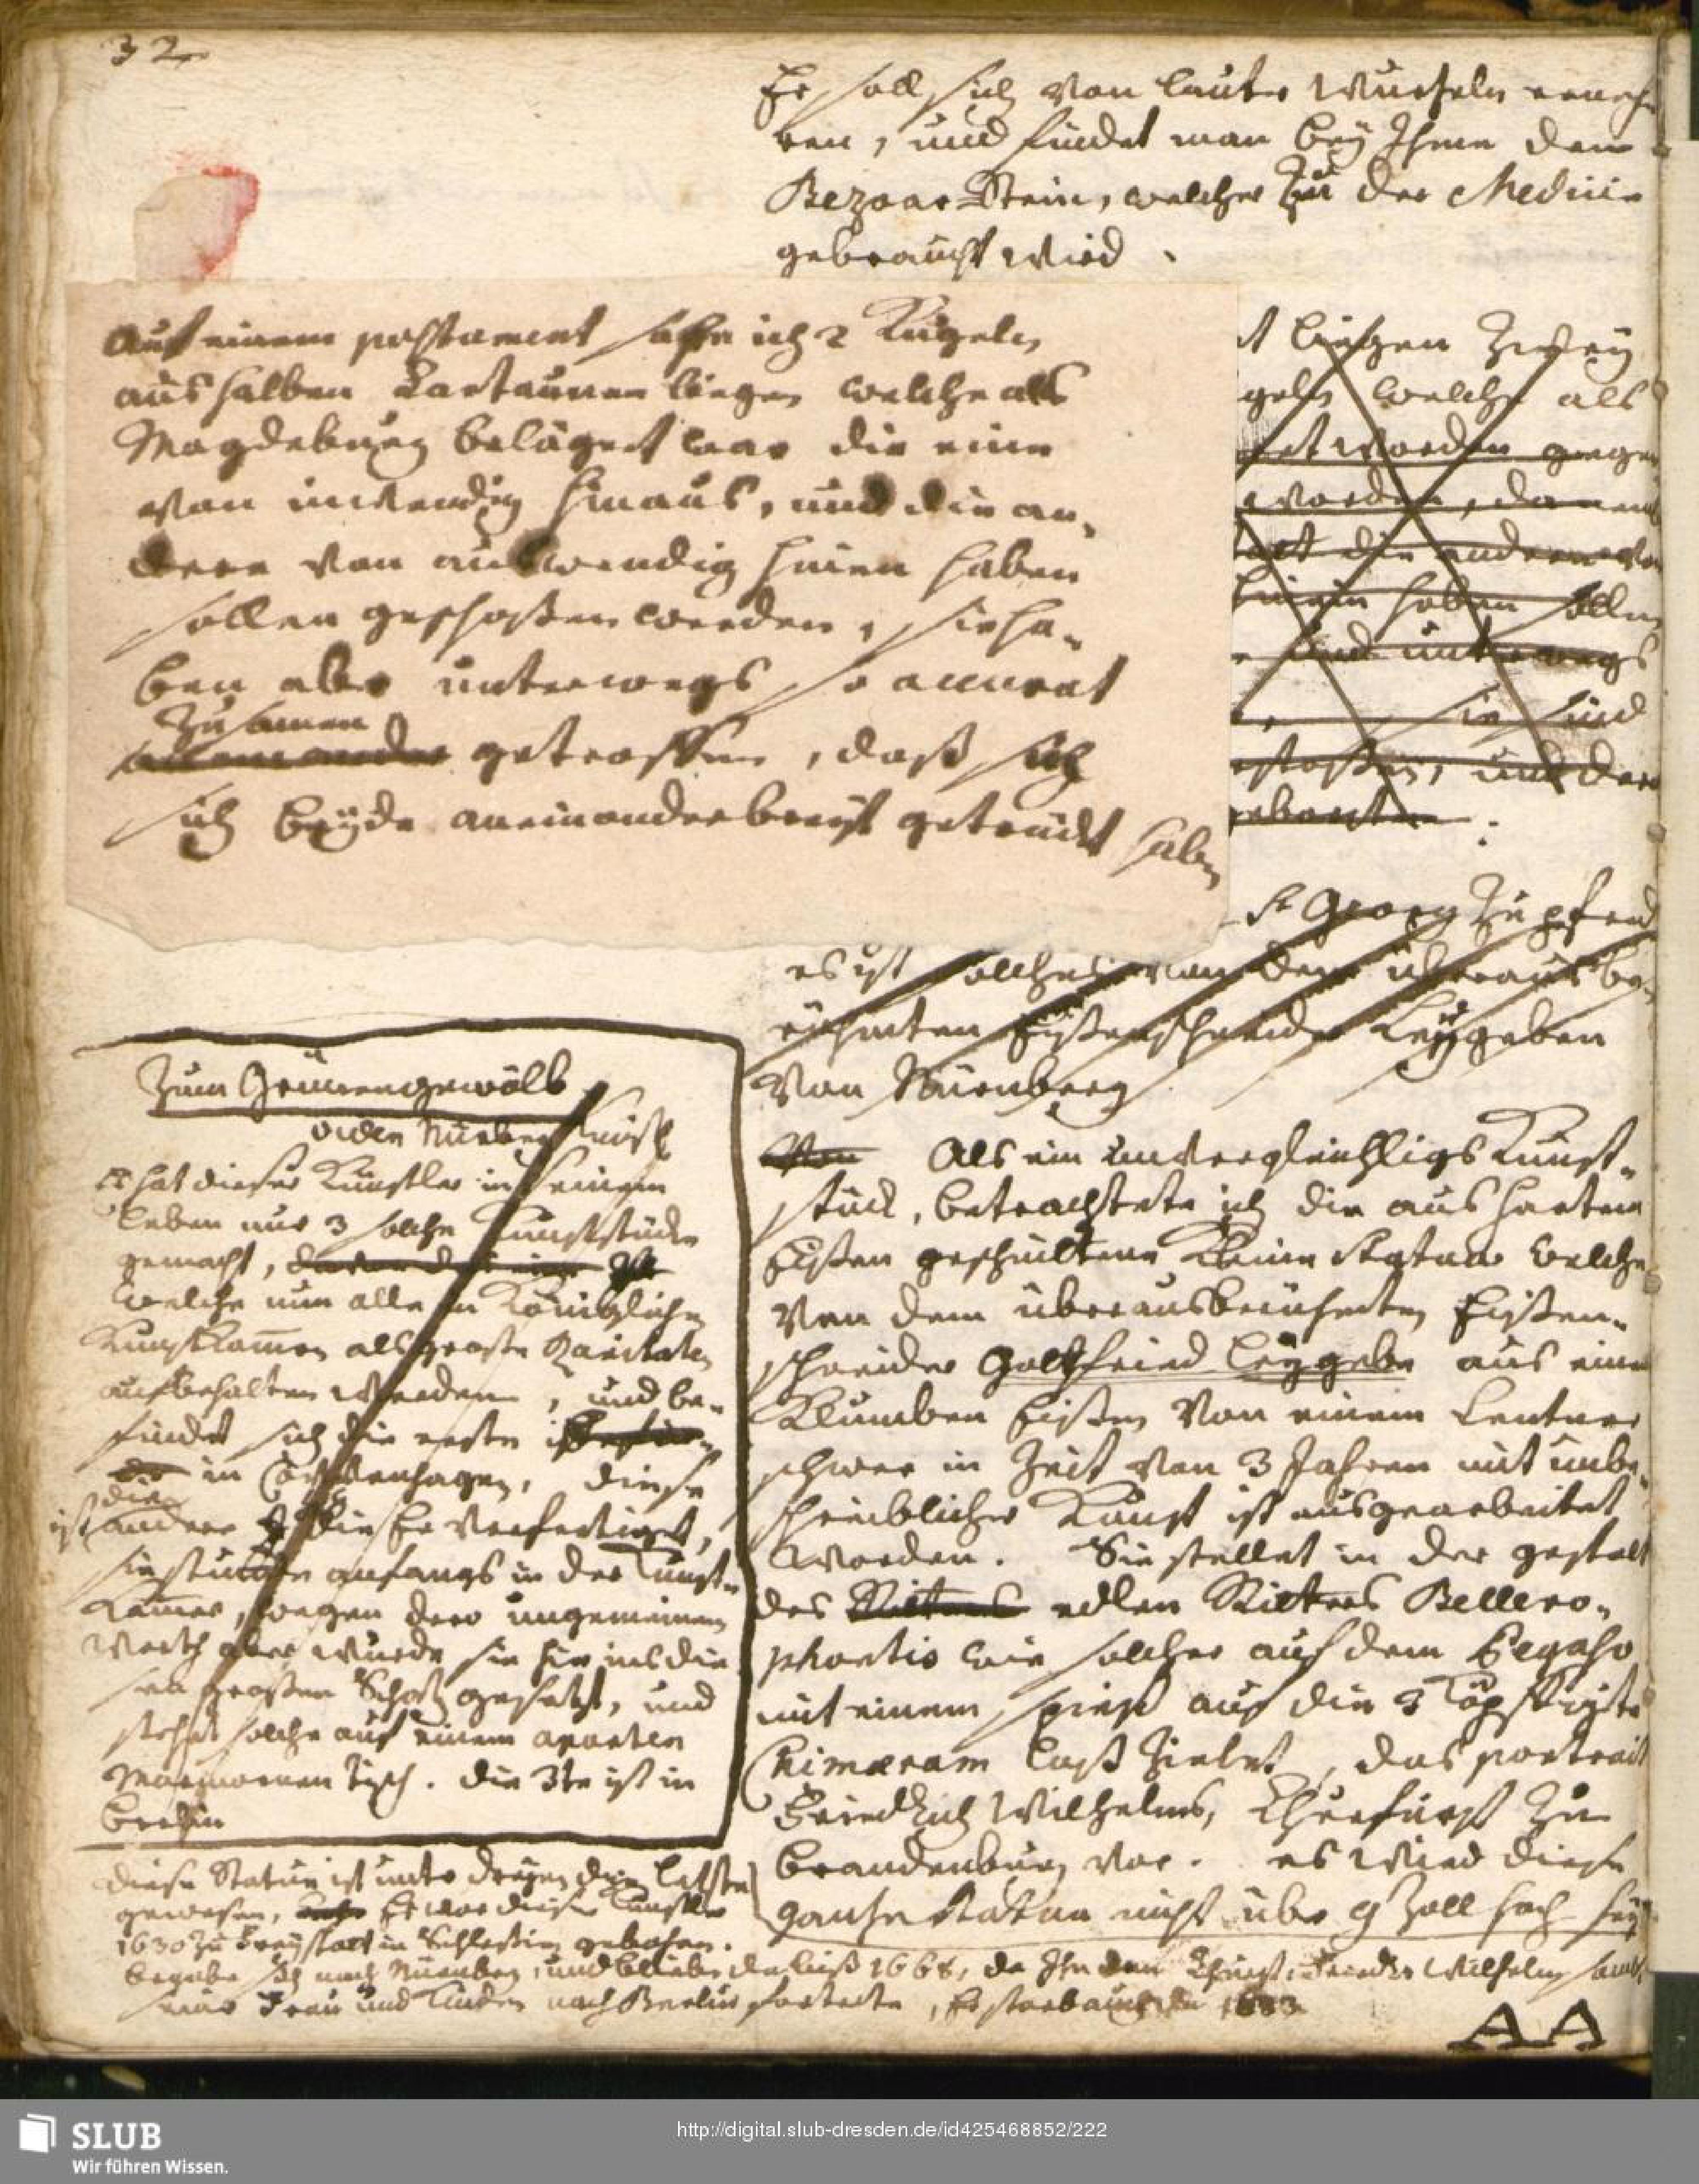 32
Er soll sich von lauter Wurtzeln erneh-
ren, und findet man bey Ihme den
Bezoar-Stein, welcher zu der Medicin
gebraucht wird.
auf einem postament sahe ich 2 Kugeln
aus halben Cartaunen liegen welche als
Magdeburg belägert war die eine
von inwendig hinaus, und die an-
dere von auswendig hinen haben
sollen geschossen werden, sie ha-
ben aber unterwegs so accurat
zusamen
getroffen, daß sich
sich beyde aneinander breit getruckt haben
t liegen Zwey
geln welche als
et worden gegen
worden, da
die andere
hinein haben sollen
und unterwegs
sie sind
und
St Georg zu pferd
es ist solches von dem überaus be-
rühmten Eißenschneider Leygeben
von Nürnberg
Als ein unvergleichligs Kunst-
stück, betrachtete ich die aus hartem
Eißen geschnittene kleine Statua welche
von dem überausberühmten Eißen-
schneider Gottfried Leygebe aus einem
Klumben Eißen von einem Centner
schwer in Zeit von 3 Jahren mit unbe-
schreiblicher Kunst ist ausgearbeitet
worden. Sie stellet in der gestalt
des Ritters edlen Ritters Bellero-
phontis wie solcher auf dem Pegaso
mit einem spieß auf die 3 Köpffigte
Chimæram loß zielet, das portrait
Friedrich Wilhelms, Churfürst zu
Brandenburg vor. es wird diese
gantze Statua nicht über 9 Zoll hoch sey
Zum Grünengewölb
hat dieser Künstler in seinem
leben nur 3 solche Kunststücke
gemacht,
welche nun alle in Königlichen
Kunstkamern als große Raritaten
aufbehalten werden, und be-
findet sich die erste
in Coppenhagen, diese
ist die
andere die Er verfertiget,
sie stunde anfangs in der Kunst-
Kamer, wegen dero ungemeinen
werth aber wurde sie hie ins die-
sen großen Schatz gesetzt, und
stehet solche auf einem aparten
Marmornen tisch. die 3te ist in
Berlin
diese Statue ist unter dreyen die letzte
gewesen, Er war dieser Künstler
1630 zu Freystatt in Schlesien gebohren.
begabe sich nach Nürnberg, und bliebe da biß 1668, da Ihn der Churfürst Friedr Wilhelm samt
seine Frau und Kinder nach Berlin forderte, Er starb auch da 1683
AA
SLUB
Wir führen Wissen.
http://digital.slub-dresden.de/id425468852/222